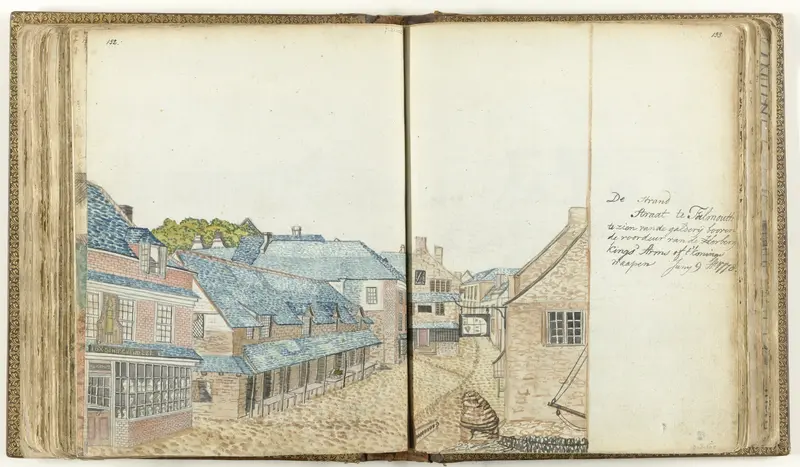 152.
133
De Strand
Straat te Falmouth
te zien van de galderij boven
de voordeur van de Herberg
Kings Arms of Koning
Waapen Juny 9 1778.